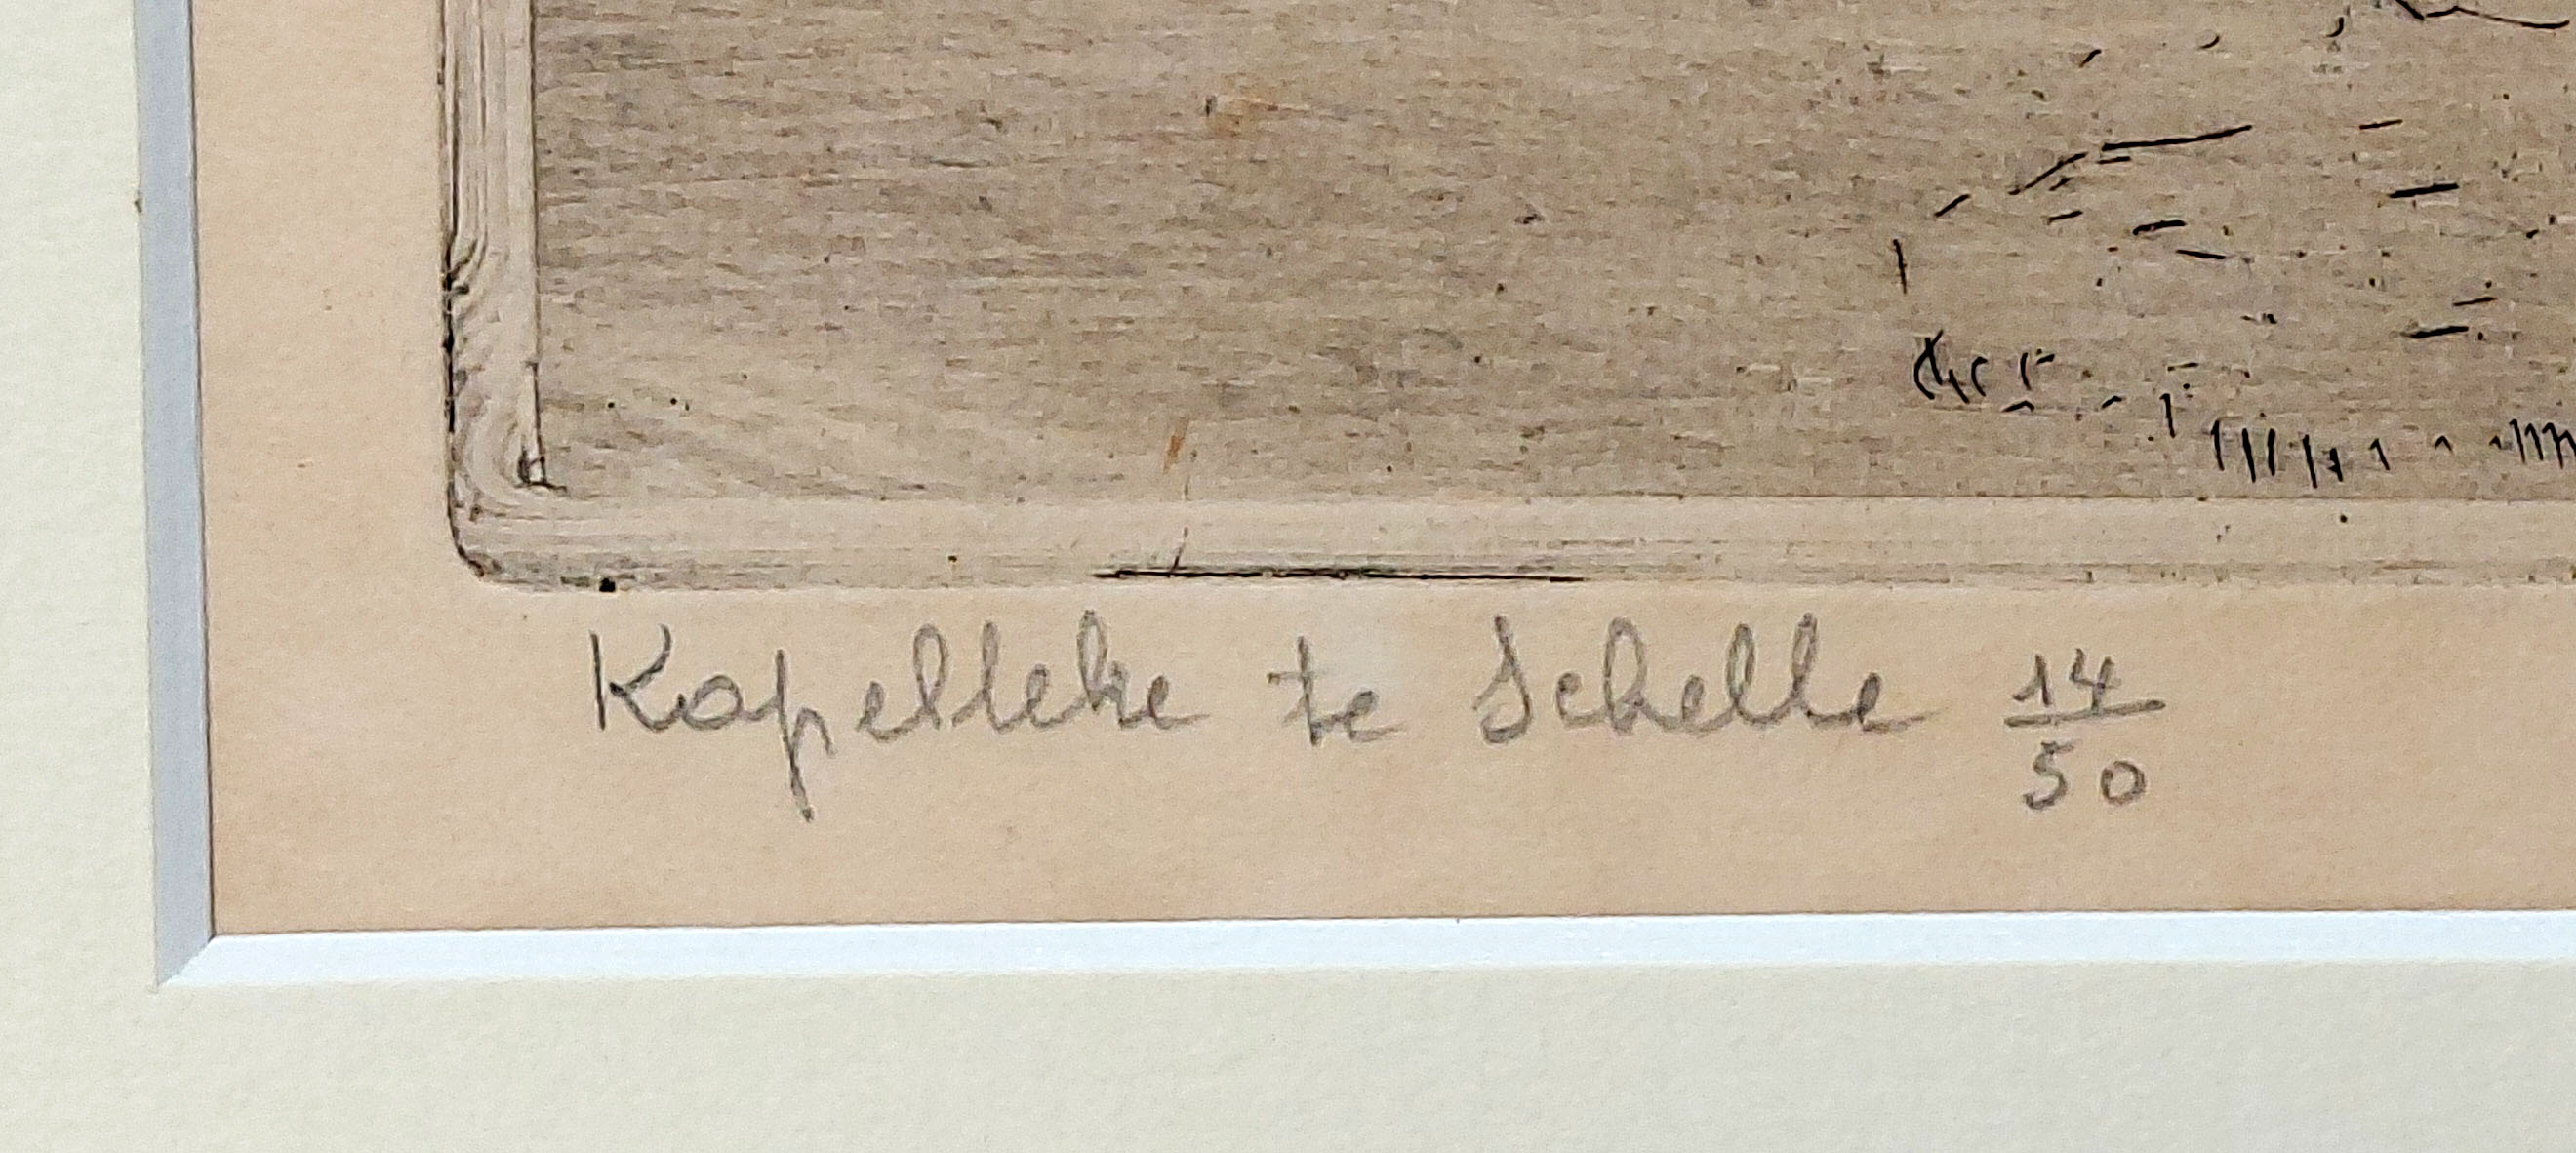 Kapelleke te Schelle 14/50